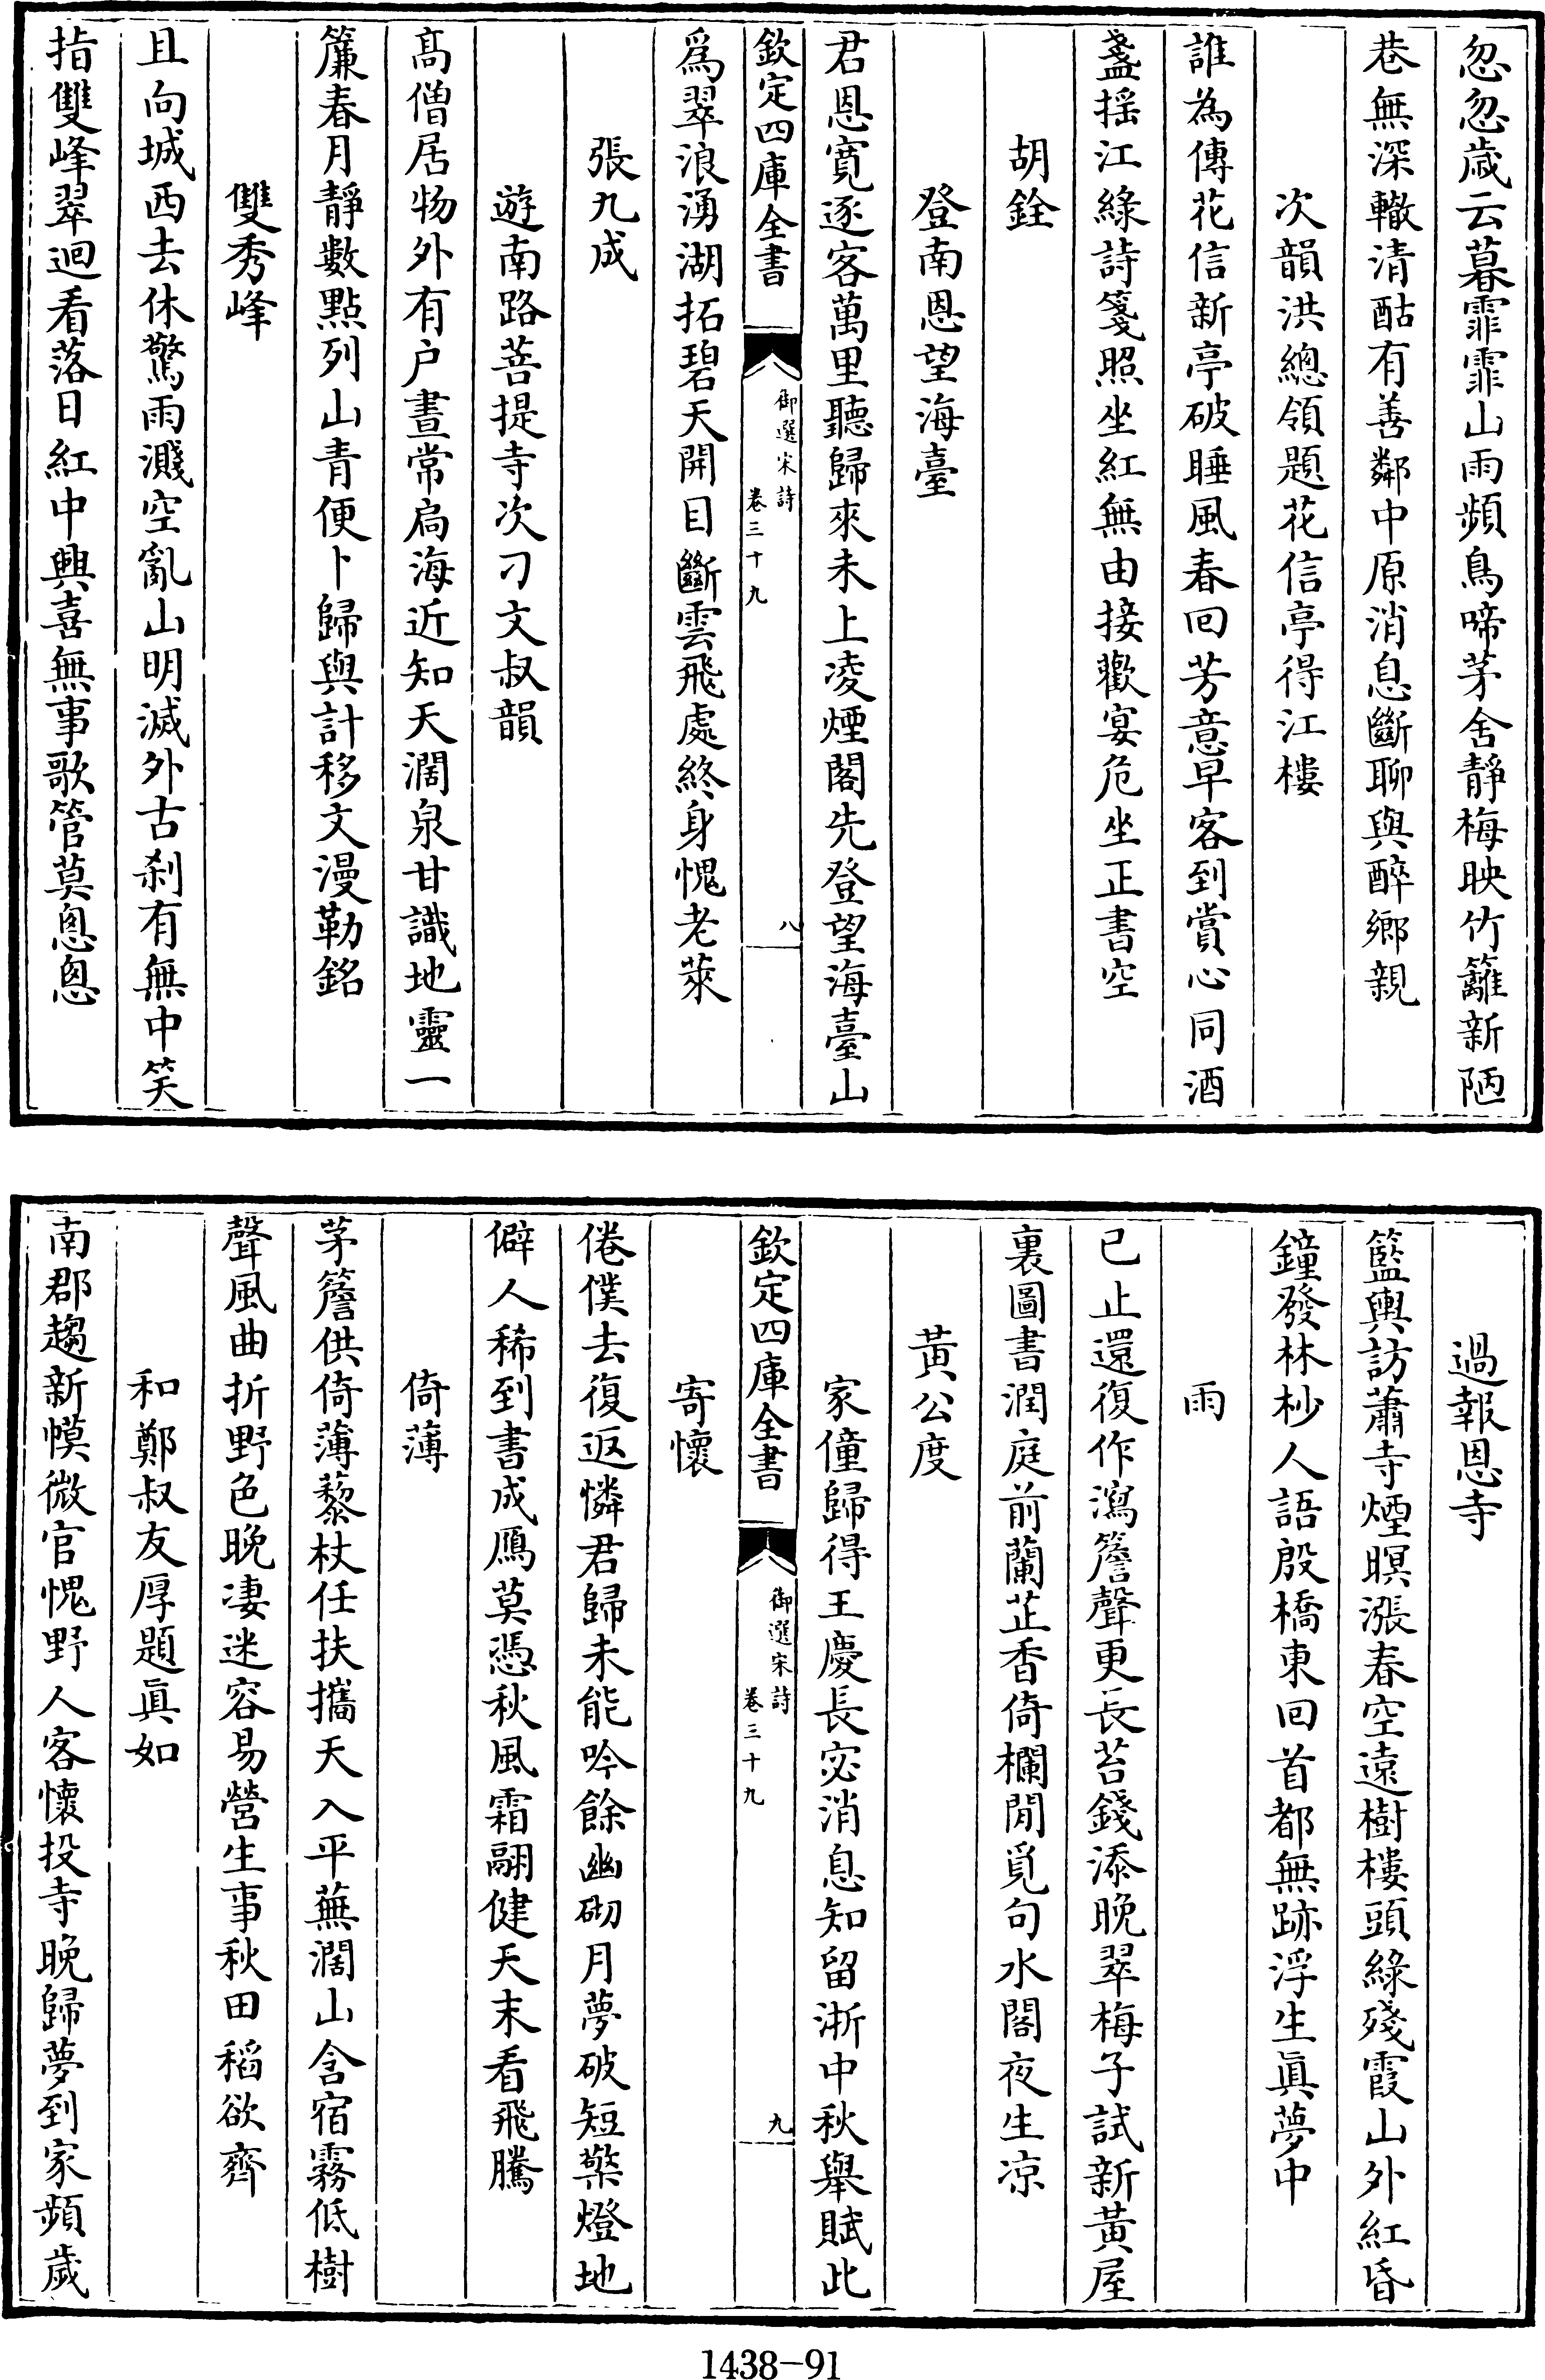 忽忽歳云暮霏霏山雨頻鳥啼茅舍靜梅映竹籬新陋
巷無深轍清酤有善鄰中原消息斷聊與醉鄉親
次韻洪總領題花信亭得江樓
誰為傳花信新亭破睡風春回芳意早客到賞心同酒
盞揺江綠詩箋照坐紅無由接歡宴危坐正書空
胡銓
登南恩望海臺
君恩寛逐客萬里聽歸來未上凌煙閣先登望海臺山
欽定四庫全書
御選宋詩
卷三十九
八
爲翠浪湧湖拓碧天開目斷雲飛處終身愧老萊
張九成
遊南路菩提寺次刁文叔韻
高僧居物外有户晝常扃海近知天濶泉甘識地靈一
簾春月靜數點列山青便卜歸與計移文漫勒銘
雙秀峰
且向城西去休驚雨濺空亂山明滅外古刹有無中笑
指雙峰翠迴看落日紅中興喜無事歌管莫悤悤
過報恩寺
籃輿訪蕭寺煙暝漲春空遠樹樓頭綠殘霞山外紅昏
鐘發林杪人語殷橋東回首都無跡浮生眞夢中
雨
已止還復作瀉簷聲更長苔錢添晚翠梅子試新黃屋
裏圖書潤庭前蘭芷香倚欄閒覓句水閣夜生凉
黃公度
家僮歸得王慶長宻消息知留浙中秋舉賦此
欽定四庫全書
御選宋詩
卷三十九
九
寄懷
倦僕去復返憐君歸未能吟餘幽砌月夢破短檠燈地
僻人稀到書成鴈莫憑秋風霜翮健天末看飛騰
倚薄
茅簷供倚薄藜杖任扶攜天入平蕪濶山含宿霧低樹
聲風曲折野色晚凄迷容易營生事秋田稻欲齊
和鄭叔友厚題眞如
南郡趨新幙微官愧野人客懷投寺晚歸夢到家頻歲
1438-91